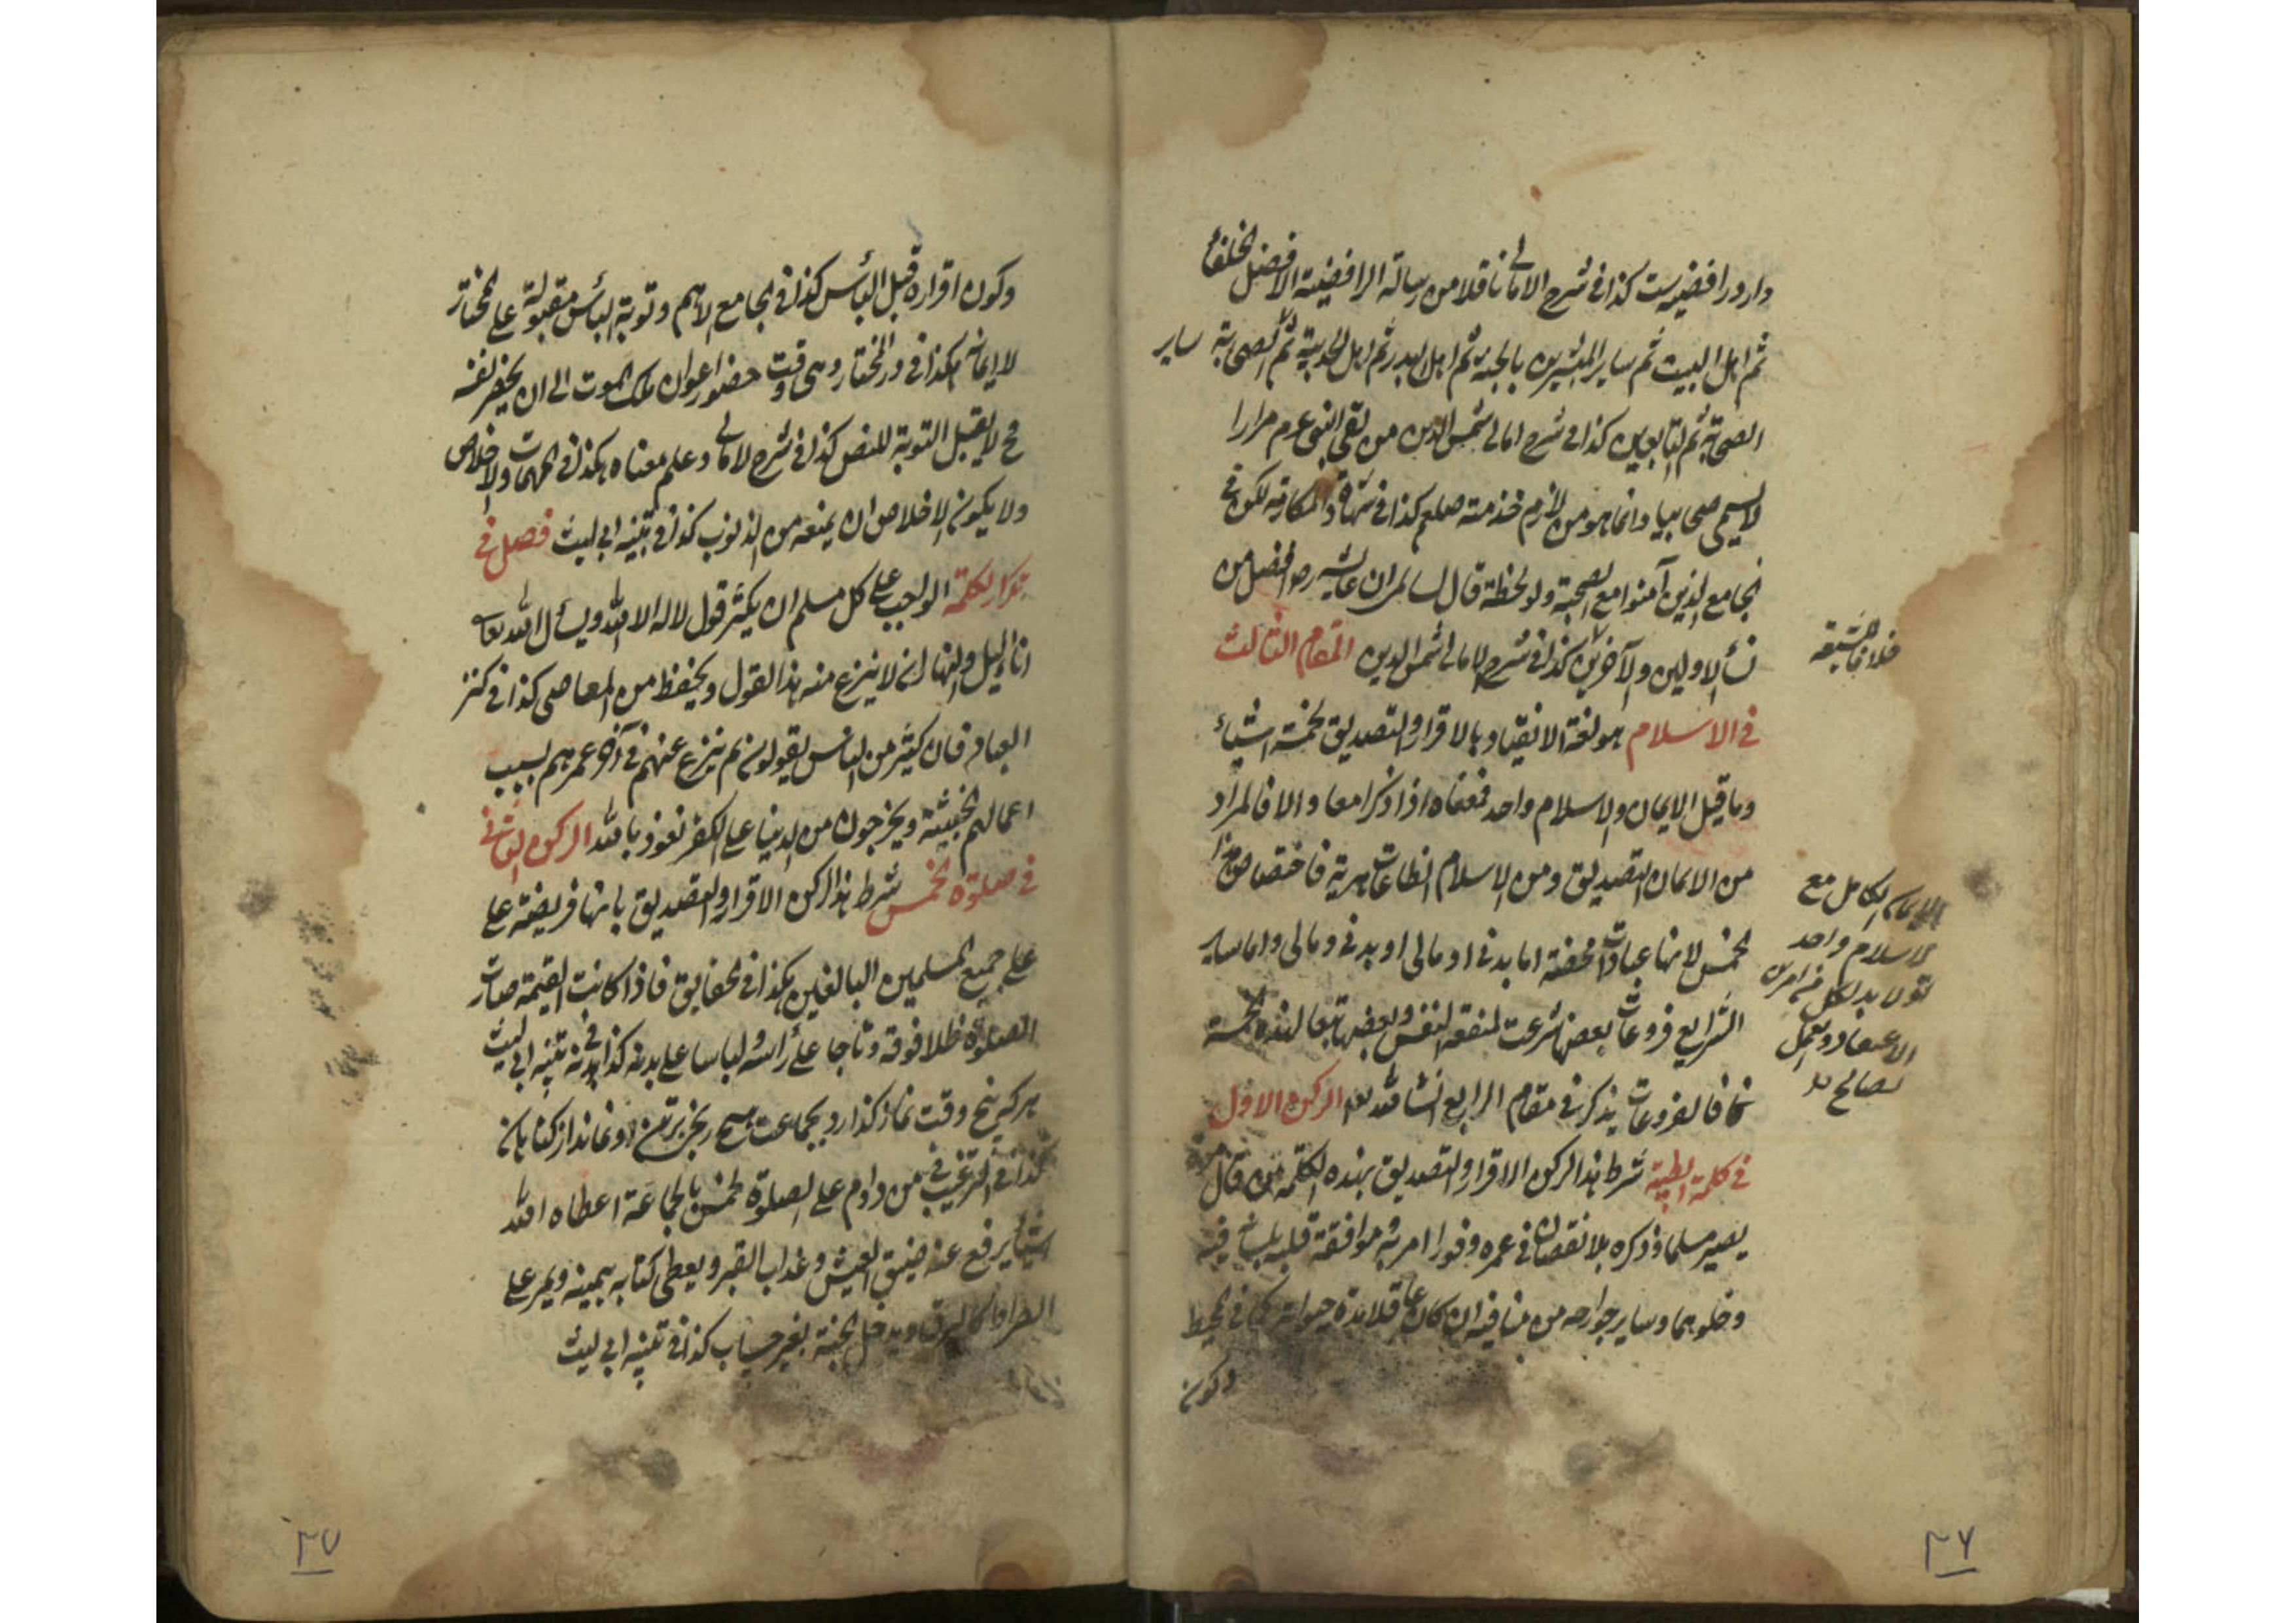 دارد رافضیست کذا فی شرح الامالی ناقلا من رسالة الرافضیة الافضل الخلفاء
ثم اهل البیت ثم سایر المبشرین بالجنة ثم اهل البدر ثم اهل الحدیبیة ثم الصحابة سایر
الصحابة ثم التابعین کذا فی شرح امالی شمس الدین من لقی النبی عرم مرارا
لا یسمی صحابیا وانما هو من لازم خدمته صلعم کذا فی
مع الذین آمنوا مع الصحبة ولو لحظة قال ان عایشه رض افضل من
نساء الاولین والآخرین کذا فی شرح الامالی شمس الدین المقام الثالث
فی الاسلام هو لغة الانقیاد بالاقرار والتصدیق بخمسة اشیاء
وما قیل الایمان والاسلام واحد فمعناه اذا ذکرا معا والا فالمراد
من الایمان التصدیق ومن الاسلام الطاعات فاختصاص هذا
الخمس لانها عبادات محضة اما بدنی او مالی او بدنی ومالی واما سایر
الشرایع فروعات بعضها شرعت لمنفعة النفس وبعضها تبعا لهذه الخمسة
فالفروعات یذکر فی مقام الرابع انشاء الله تعا الرکن الاول
فی کلمة الطیبة شرط هذا الرکن الاقرار والتصدیق بهذه الکلمة من قال
یصیر مسلما وذکره بلا نقصان فی عمره وفورا موافقة قلبه بلسان فیه
وخلوهما وسایر جوارحه من منافیه ان کان قلادة کما فی المحیط
وکون
الایمان الکامل مع
الاسلام واحد
لا بد لکل من
الاعتقاد والعمل
الصالح
وکون اقراره قبل البأس کذا فی الجامع الاهم وتوبة الیأس مقبولة علی المختار
لا ایمانه هکذا فی در المختار وهی وقت حضور اعوان ملک الموت الی ان یحضر نفسه
فح لا یقبل التوبة للنص کذا فی شرح الامالی وعلم معناه هکذا فی المهمات والاخلاص
ولا یکون الاخلاص ان یمنعه من الذنوب کذا فی تنبیه ابی لیث فصل فی
تکرار الکلمة الواجب علی کل مسلم ان یکثر قول لا اله الا الله ویسأل الله تعا
اناء اللیل والنهار ان لا ینزع منه هذا القول ویحفظ من المعاصی کذا فی کنز
العباد فان کثیر من الناس یقولون ثم ینزع عنهم فی آخر عمرهم بسبب
اعمالهم الخبیثة ویخرجون من الدنیا علی الکفر نعوذ بالله الرکن الثانی
فی صلوة الخمس شرط هذا الرکن الاقرار والتصدیق بانها فریضة علی
علی جمیع المسلمین البالغین هکذا فی الحقایق فاذا کانت القیمة صارت
الصلوة ظلا فوقه وتاجا علی رأسه ولباسا علی بدنه کذا فی تنبیه ابی لیث
هر که پنج وقت نماز گذارد بجماعت هیچ بر تن او نماند از گناهان
کذا فی الترغیب من داوم علی الصلوة الخمس بالجماعة اعطاه الله
یرفع عنه ضیق العیش وعذاب القبر ویعطی کتابه بیمینه ویمر علی
الصراط کالبرق ویدخل الجنة بغیر حساب کذا فی تنبیه ابی لیث
۲۶
۲۷